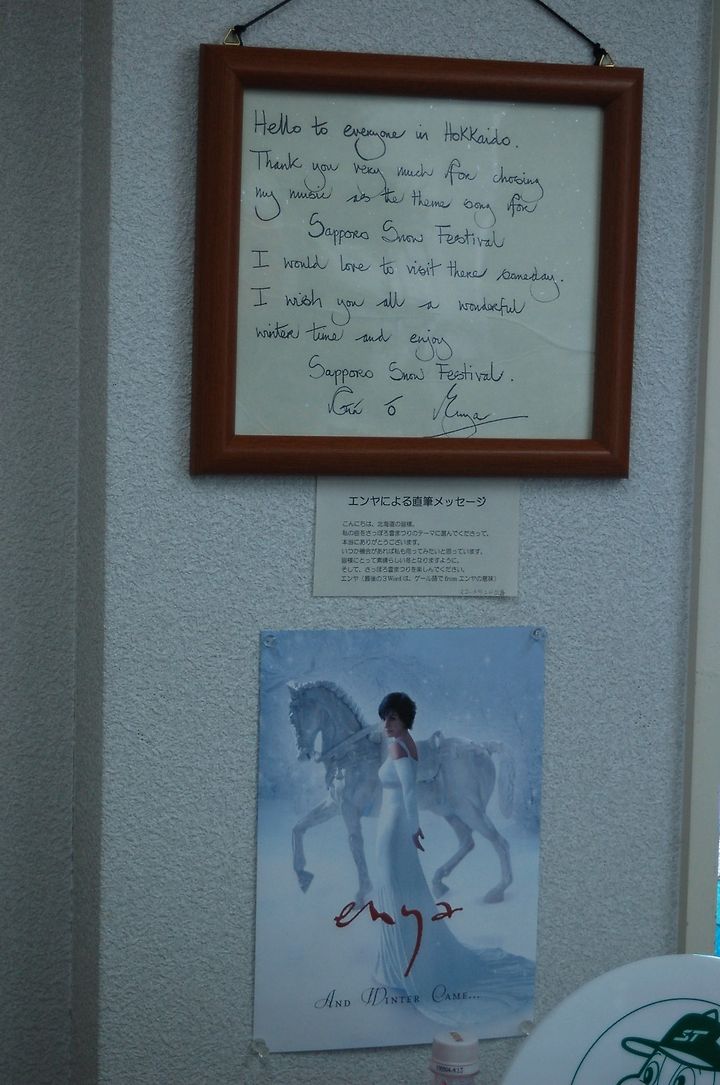 Hello to everyone in Hokkaido.
Thank you very much for chosing
my music as the theme song for
Sapporo Snow Festival
I would love to visit there someday.
I wish you all a wonderful
winter time and enjoy
Sapporo Snow Festival.
Ó Enya
エンヤによる直筆メッセージ
こんにちは、北海道の皆様。
私の曲をさっぽろ雪まつりのテーマに選んでくださって、
本当にありがとうございます。
いつか機会があれば私も伺ってみたいと思っています。
皆様にとって素晴らしい冬となりますように。
そして、さっぽろ雪まつりを楽しんでください。
エンヤ（最後の3Wordは、ゲール語でfromエンヤの意味）
enya
AND WINTER CAME...
ST